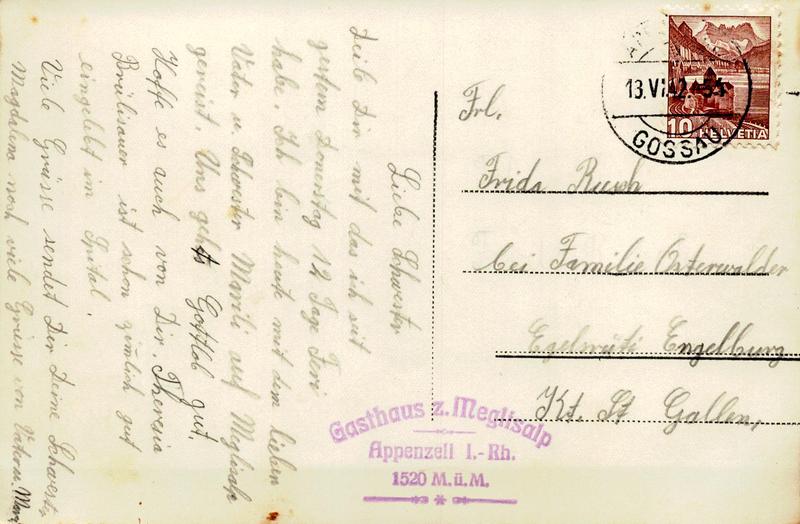 Liebe Schwester
Teile Dir mit das ich seit
gestern Donnerstag 12 Tage Feri
habe. Ich bin heute mit dem lieben
Vater u. Schwester Marili auf Meglisalp
gereist. Uns geht's Gottlob gut,
Hoffe es auch von Dir. Theresia
Brülisauer ist schon zimlich gut
eingelebt im Spital.
Viele Grüsse sendet Dir Deine Schwester
Magdalena noch viele Grüsse von Vater u. Mari
Frl.
Frida Rusch
bei Familie Osterwalder
Egelmüti Engelburg
Kt. St Gallen,
13.VI.42.
GOSSAU
10 HELVETIA
Gasthaus z. Meglisalp
Appenzell I.-Rh.
1520 M.ü.M.